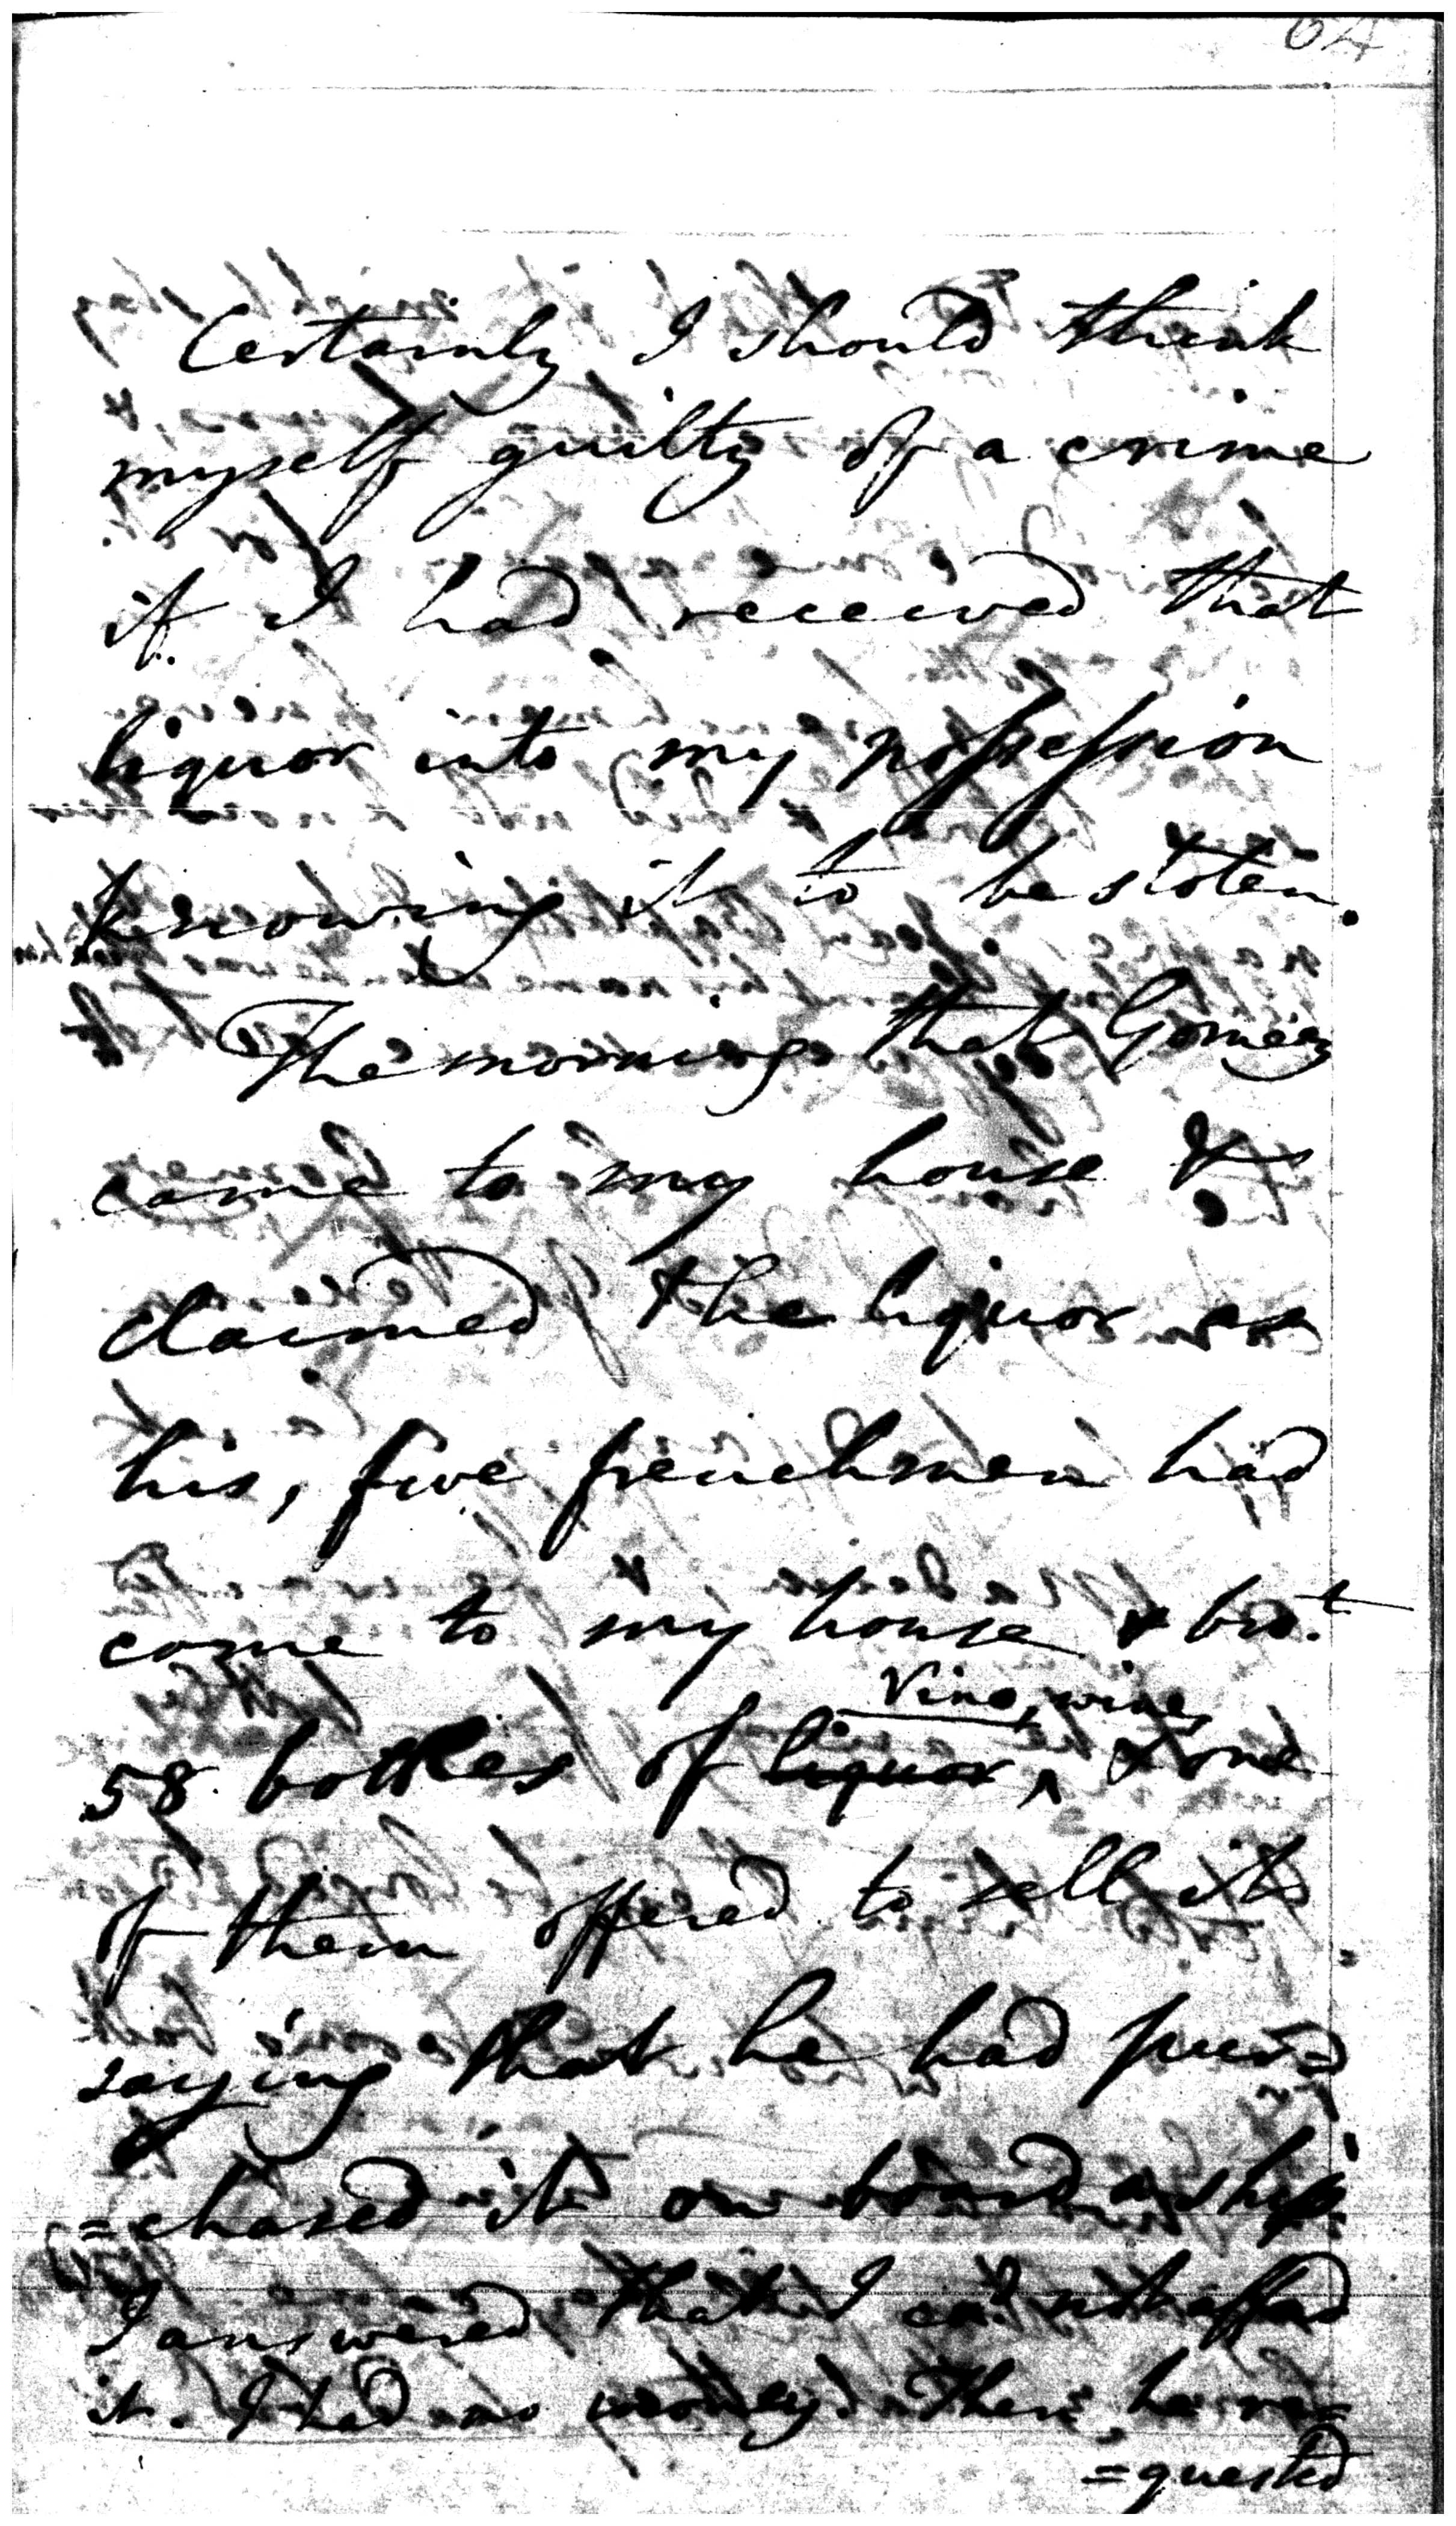 64
Certainly I should think
myself guilty of a crime
if I had received that
liquor into my possession
knowing it to be stolen.
The morning that Gomez
came to my house &
claimed the liquor as
his, five frenchmen had
come to my house & bro.t
Vino, wine,
58 bottles of liquor, & one
of them offered to sell it
saying that he had pur=
=chased it on board a ship.
I answered that I cd. not affod
it. I had no money. Then, he re=
=quested